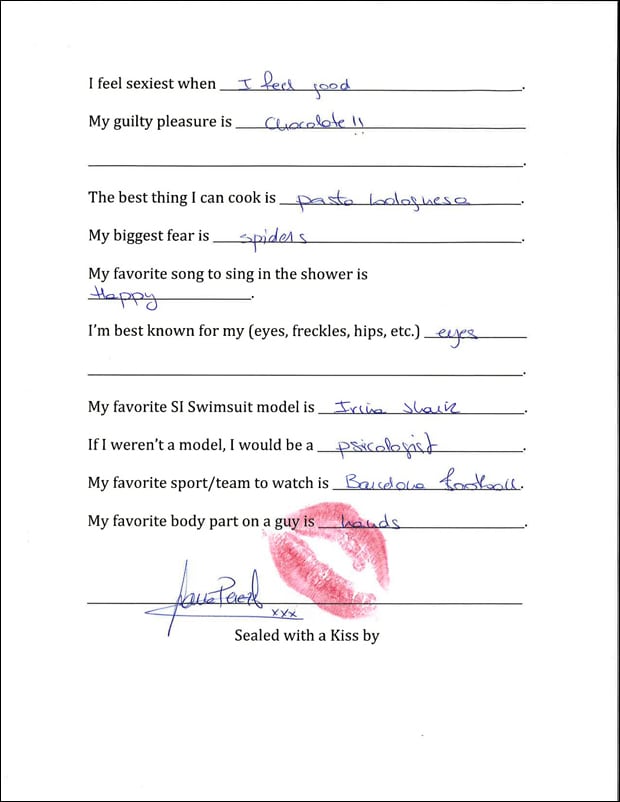 I feel sexiest when I feel good.
My guilty pleasure is Chocolate!!
.
The best thing I can cook is pasta bolognesa.
My biggest fear is spiders.
My favorite song to sing in the shower is
Happy.
I'm best known for my (eyes, freckles, hips, etc.) eyes
.
My favorite SI Swimsuit model is Irina Shaik.
If I weren't a model, I would be a psicologist.
My favorite sport/team to watch is Barcelona football.
My favorite body part on a guy is hands.
xxx
Sealed with a Kiss by